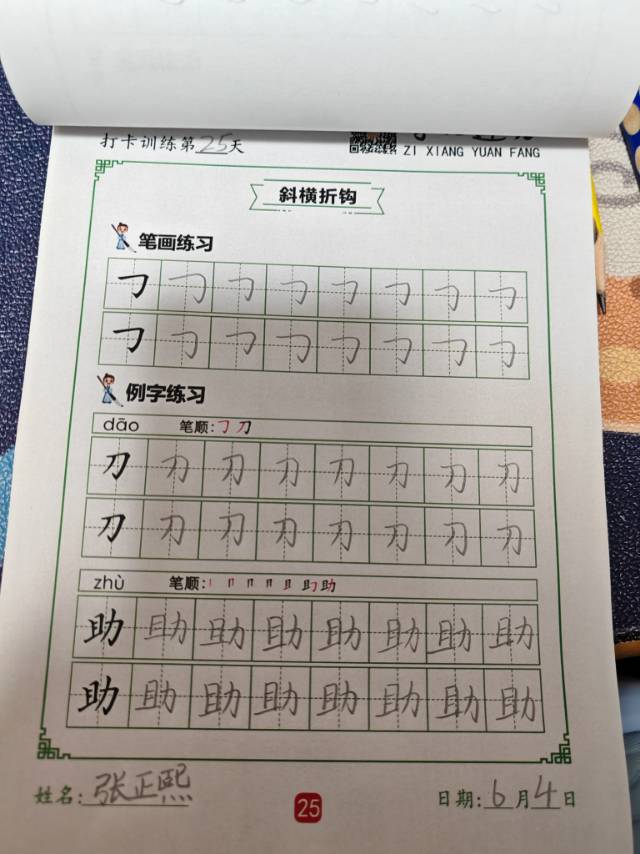 打卡训练第25天
ZI XIANG YUAN FANG
斜横折钩
笔画练习
㇆ ㇆ ㇆ ㇆ ㇆ ㇆ ㇆ ㇆
㇆ ㇆ ㇆ ㇆ ㇆ ㇆ ㇆ ㇆
例字练习
dāo 笔顺: ㇆ 刀
刀 刀 刀 刀 刀 刀 刀 刀
刀 刀 刀 刀 刀 刀 刀 刀
zhù 笔顺:
助 助 助 助 助 助 助 助
助 助 助 助 助 助 助 助
姓名: 张正熙 25 日期: 6月4日